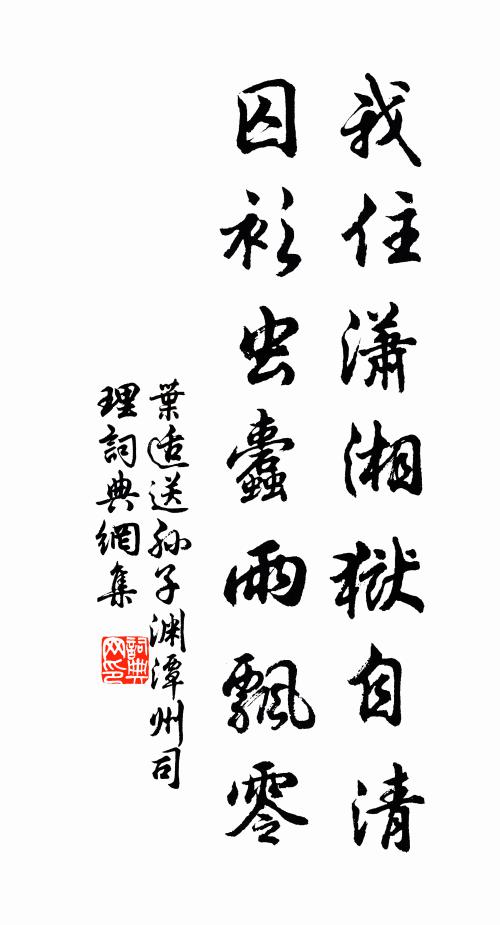 我住瀟湘獄自清
囚衫虫蠹雨飄零
葉适送孙子渊潭州司
理詞典網集
詞典网印